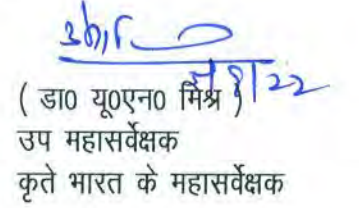 ( डा० यू०एन० मिश्र )
उप महासर्वेक्षक
कृते भारत के महासर्वेक्षक